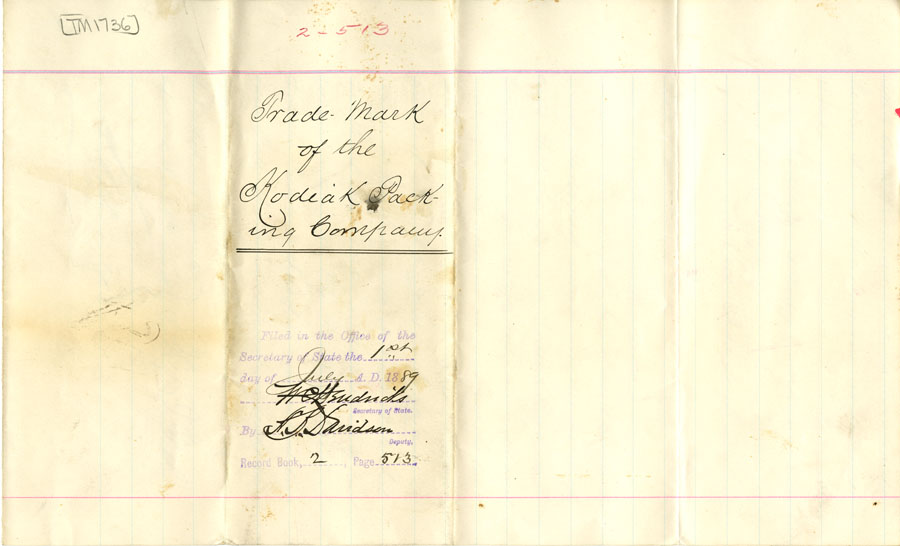 [TM1736]
2-513
Trade-Mark
of the
Kodiak Pack-
ing Company.
Filed in the Office of the
Secretary of State the 1st
day of July A. D. 1889
W C Hendricks
Secretary of State.
By Davidson
Deputy.
Record Book, 2, Page 513